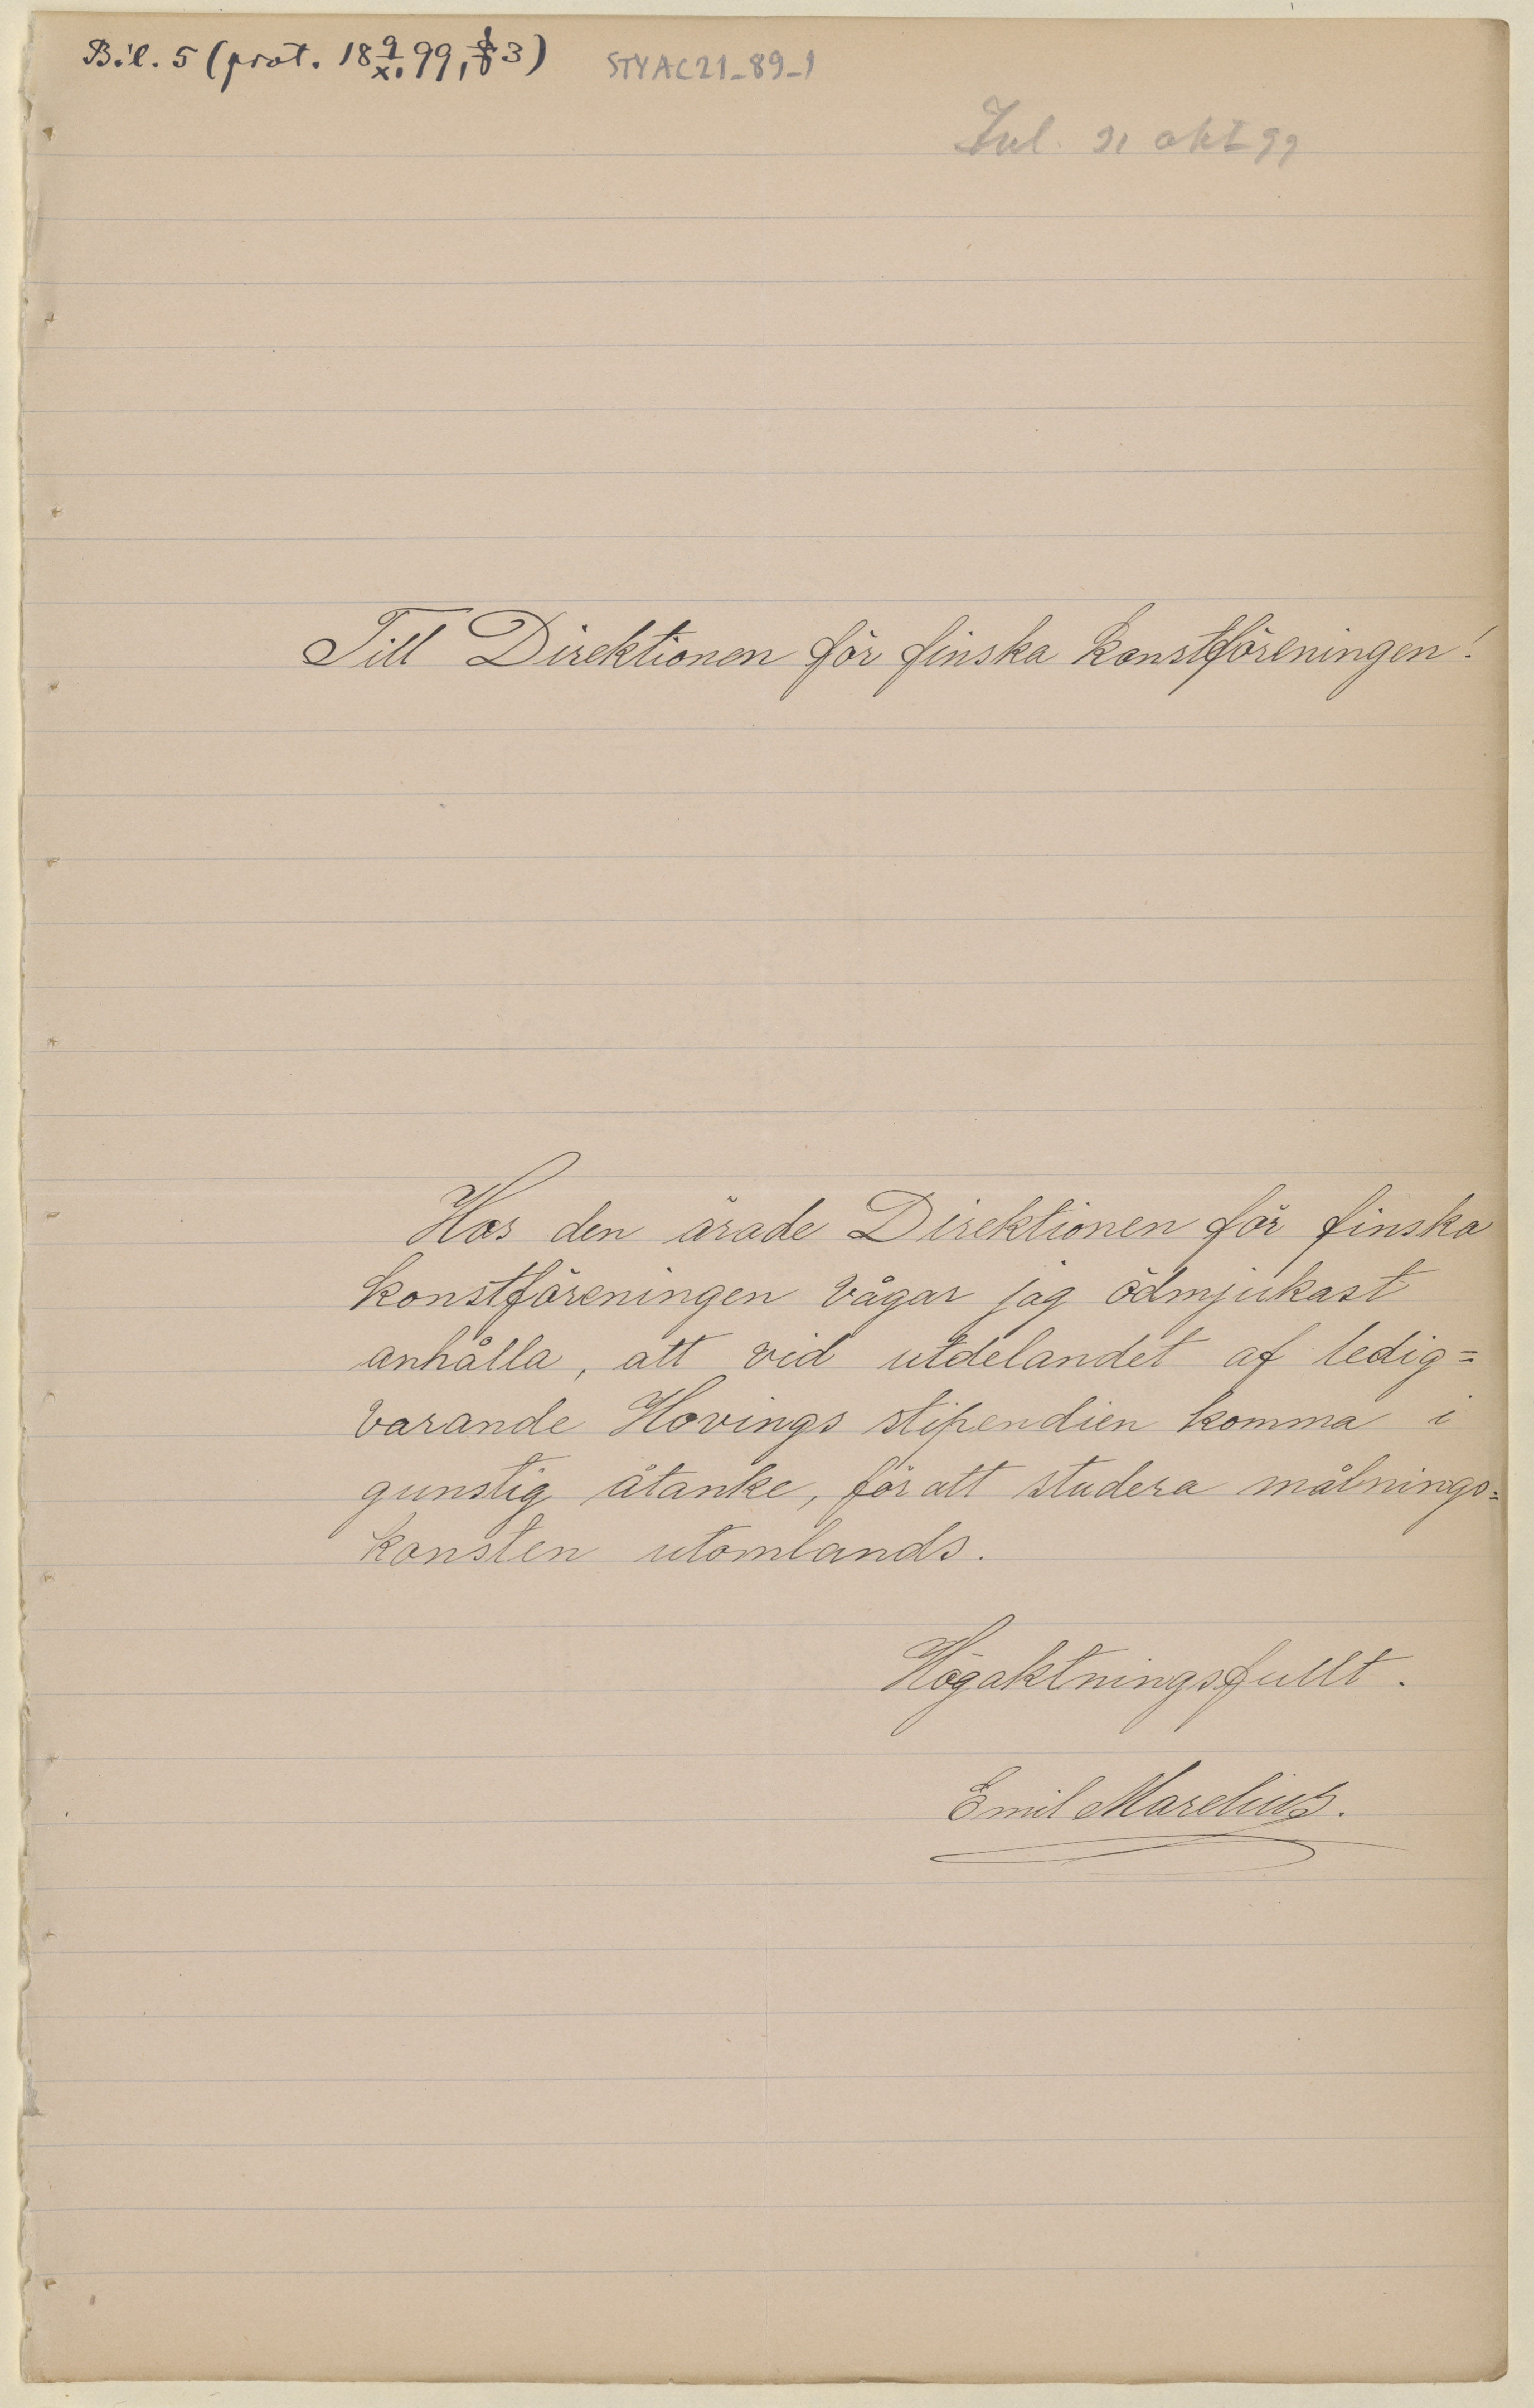 Bil. 5 (prot. 18 9/XI. 99, § 3)
STYAC21_89_1
Inl. 31 okt 99
Till Direktionen för finska konstföreningen!
Hos den ärade Direktionen för finska
konstföreningen vågar jag ödmjukast
anhålla, att vid utdelandet af ledig=
varande Hovings stipendien komma i
gunstig åtanke, för att studera målnings=
konsten utomlands.
Högaktningsfullt.
Emil Marelius.